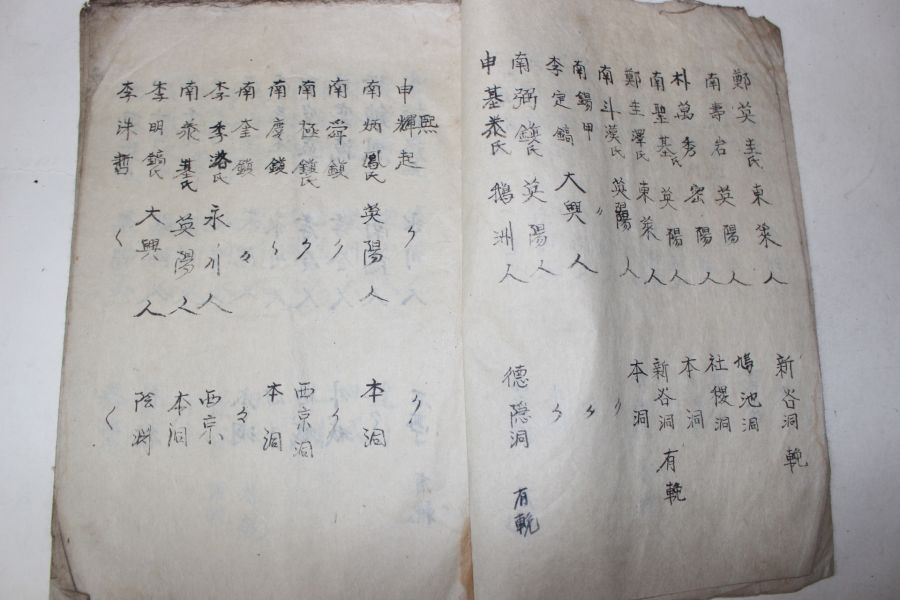 鄭英圭氏 東萊人 新谷洞 輓
南壽岩 英陽人 鳩池洞
朴萬秀氏 密陽人 社稷洞
南聖基氏 英陽人 本洞
鄭圭澤氏 東萊人 新谷洞 有輓
南斗漢氏 英陽人 本洞
南錫甲 〃 〃
李定鎬 大興人 〃
南弼鎭氏 英陽人 〃
申基泰氏 鵝洲人 德隱洞 有輓
申熙輝起 〃 〃
南炳鳳氏 英陽人 本洞
南舜鎭 〃 〃
南極鎭氏 〃 西京洞
南慶鎭 〃 本洞
南奎鎭 〃 〃
李季洛氏 永川人 西京
南泰基氏 英陽人 本洞
李明鎬氏 大興人 陰湖
李洙哲 〃 〃